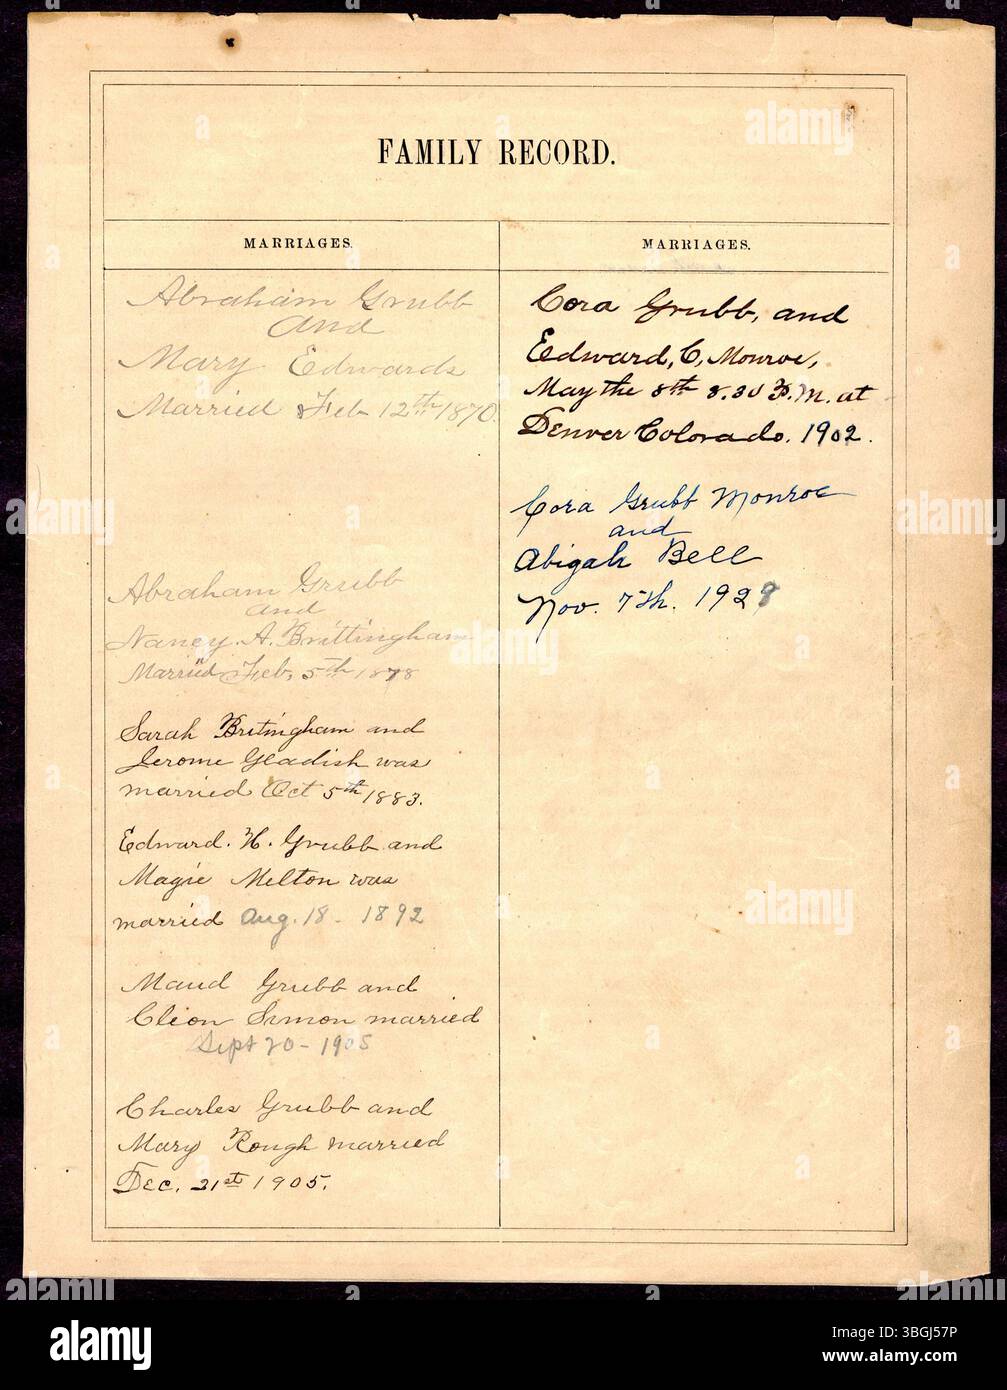 FAMILY RECORD.
MARRIAGES.
Abraham Grubb
and
Mary Edwards
Married Feb 12th 1870.
Abraham Grubb
and
Nancy A. Brittingham
Married Feb, 5th 1878
Sarah Britingham and
Jerome Gladish was
married Oct 5th 1883.
Edward. H. Grubb and
Magie Melton was
married Aug. 18 - 1892
Maud Grubb and
Clion Simon married
Sept 20 - 1905
Charles Grubb and
Mary Rough married
Dec. 21st 1905.
MARRIAGES.
Cora Grubb, and
Edward, C, Monroe,
May the 8th 8.30 P.M. at
Denver Colorado. 1902.
Cora Grubb Monroe
and
Abigah Bell
Nov. 7th. 1928
alamy
Image ID: 3BGJ57P
www.alamy.com